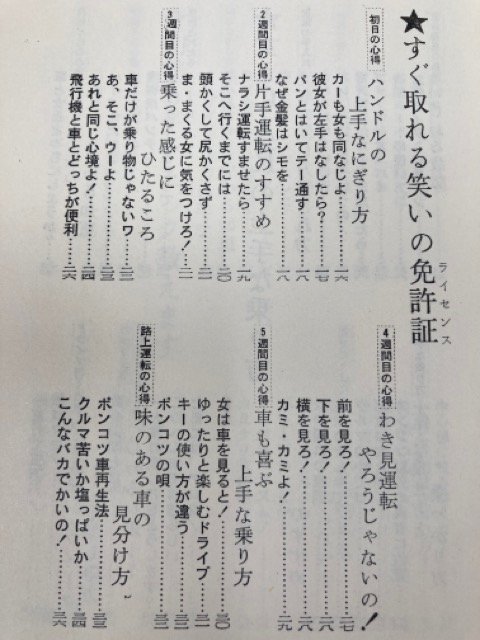 ★すぐ取れる笑いの免許証
ライセンス
初日の心得
ハンドルの
上手なにぎり方
カーも女も同なじよ……………一六
彼女が左手はなしたら？……一七
パンとはいてテー通す………一八
なぜ金髪はシモを……………一八
2週間目の心得
片手運転のすすめ
ナラシ運転すませたら………一九
そこへ行くまでには…………二〇
頭かくして尻かくさず………二一
ま・まくる女に気をつけろ！…二一
3週間目の心得
乗った感じに
ひたるころ
車だけが乗り物じゃないワ…二二
あ、そこ、ウーよ……………二三
あれと同じ心境よ！…………二四
飛行機と車とどっちが便利…二六
4週間目の心得
わき見運転
やろうじゃないの！
前を見ろ！……………………二七
下を見ろ！……………………二八
横を見ろ！……………………二八
カミ・カミよ！………………二九
5週間目の心得
車も喜ぶ
上手な乗り方
女は車を見ると！……………三〇
ゆったりと楽しむドライブ…三一
キーの使い方が違う…………三二
ポンコツの唄…………………三二
路上運転の心得
味のある車の
見分け方
ポンコツ車再生法……………三三
クルマ苦いか塩っぱいか……三四
こんなバカでかいの！………三六